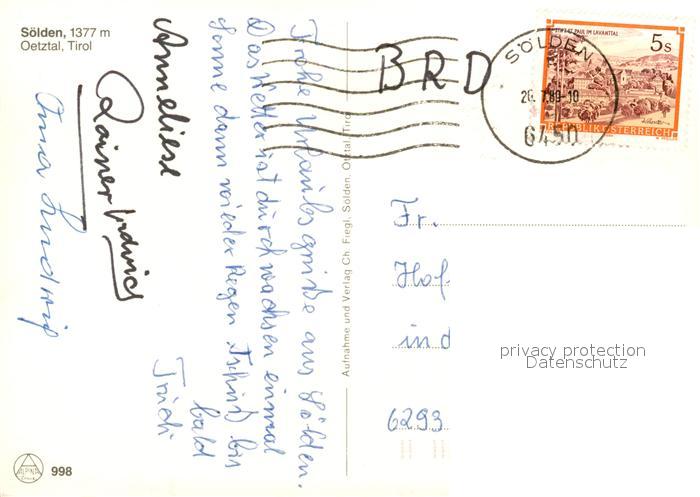 Sölden, 1377 m
Oetztal, Tirol
Frohe Urlaubsgrüße aus Sölden.
Das Wetter ist durchwachsen einmal
Sonne dann wieder Regen. Tschüß bis
bald
Trudi
Anneliese
Rainer Ludwig
Oma Ludwig
Aufnahme und Verlag Ch. Fiegl, Sölden, Ötztal, Tirol
BRD
SÖLDEN
6450
STIFT ST. PAUL IM LAVANTTAL
5 s
REPUBLIK ÖSTERREICH
Fr.
Hof
in d
6293
privacy protection
Datenschutz
ALPINA
998